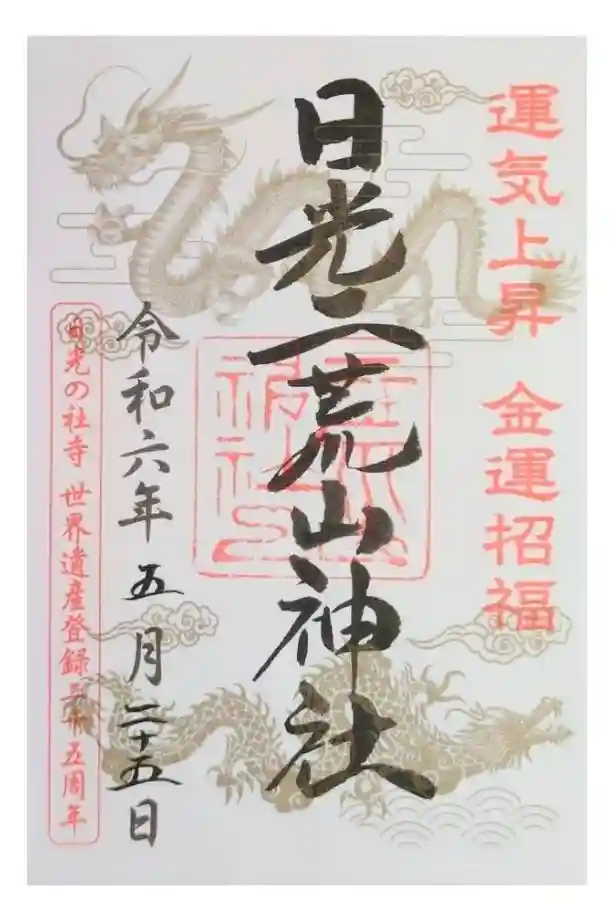 運気上昇 金運招福
日光二荒山神社
令和六年 五月二十五日
日光の社寺 世界遺産登録二十五周年